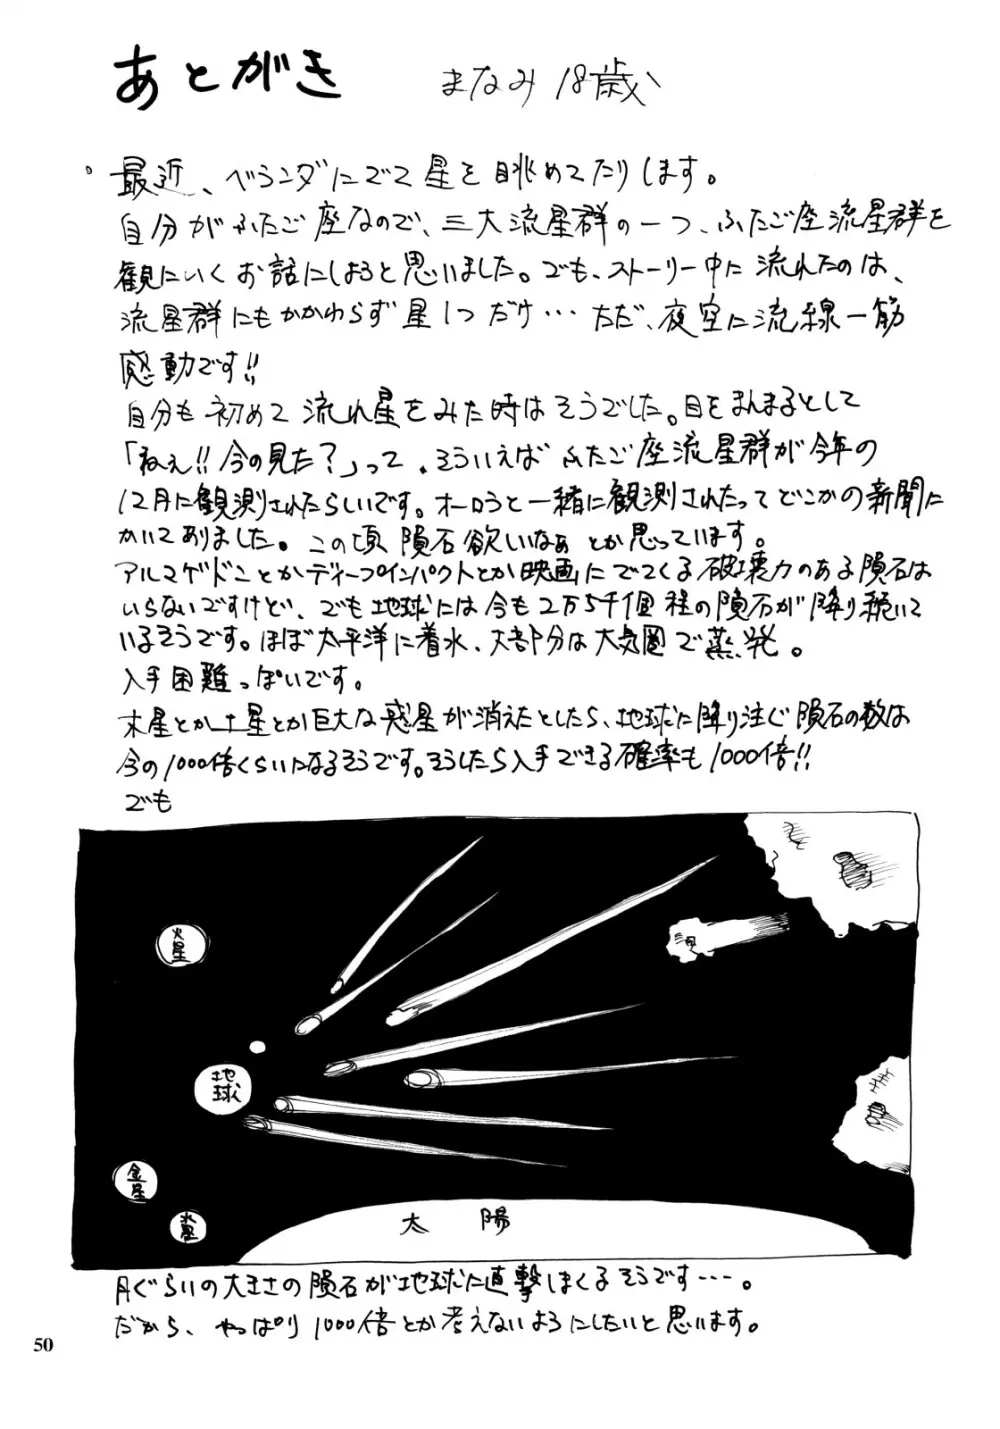 あとがき　まなみ 18歳
。最近、ベランダにでて星を眺めてたりします。
自分がふたご座なので、三大流星群の一つ、ふたご座流星群を
観にいくお話にしようと思いました。でも、ストーリー中に流れたのは、
流星群にもかかわらず星1つだけ…ただ、夜空に流線一筋
感動です!!
自分も初めて流れ星をみた時はそうでした。目をまんまるとして
「ねぇ!!今の見た?」って。そういえばふたご座流星群が今年の
12月に観測されたらしいです。オーロラと一緒に観測されたってどこかの新聞に
かいてありました。この頃隕石欲しいなぁとか思っています。
アルマゲドンとかディープインパクトとか映画にでてくる破壊力のある隕石は
いらないですけど、でも地球には今も2万5千個程の隕石が降り続いて
いるそうです。ほぼ太平洋に着水、大部分は大気圏で蒸発。
入手困難っぽいです。
木星とか土星とか巨大な惑星が消えたとしたら、地球に降り注ぐ隕石の数は
今の1000倍くらいになるそうです。そうしたら入手できる確率も1000倍!!
でも
火星
地球
金星
水星
太陽
月ぐらいの大きさの隕石が地球に直撃しまくるそうです…。
だから、やっぱり1000倍とか考えないようにしたいと思います。
50